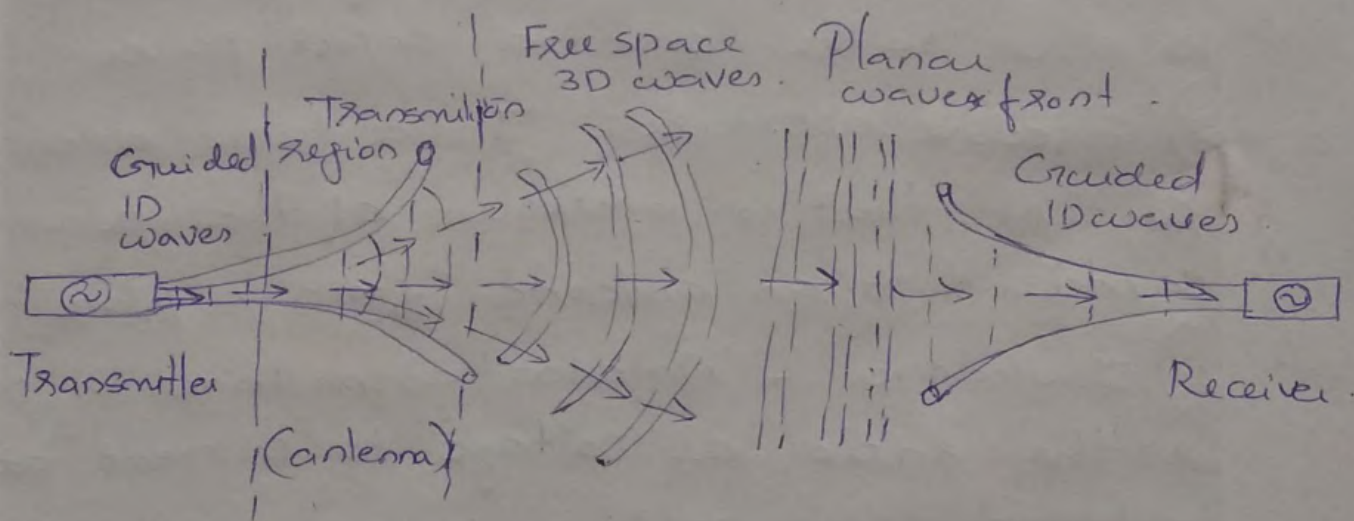 Free space
3D waves.
Planar
wave front.
Transmition
region
Guided
1D
waves
Guided
1D waves.
Transmitter
(antenna)
Receiver.